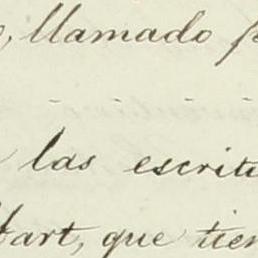 , llamado
las escritu
art, que tien